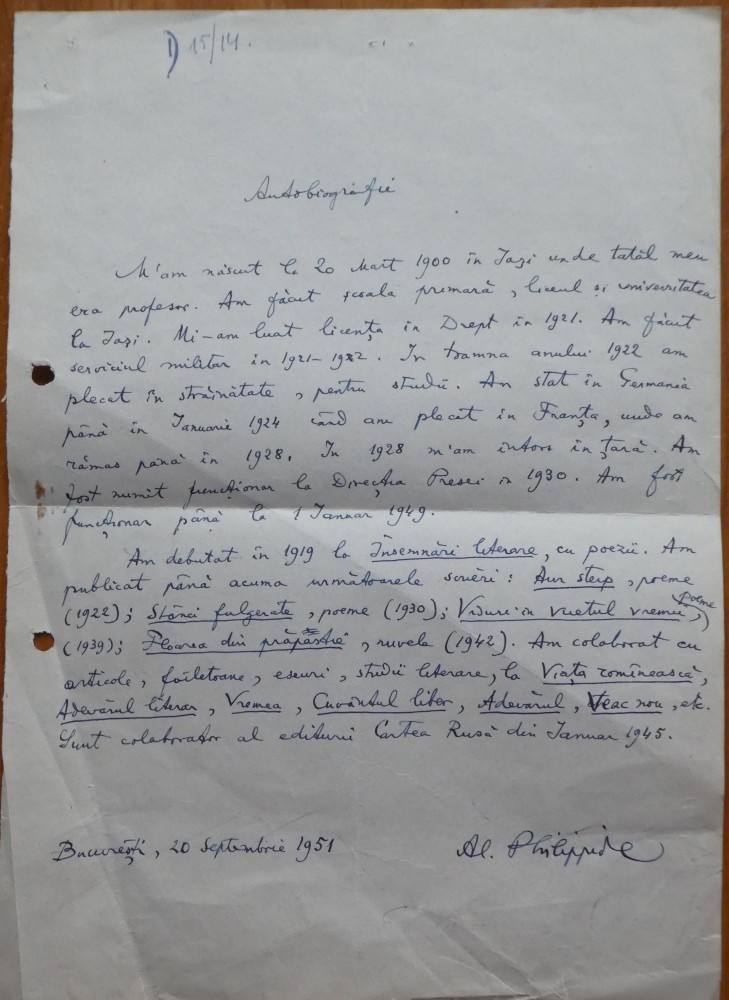 1) 15/14.
Autobiografie
M'am născut la 20 Mart 1900 în Iași unde tatăl meu
era profesor. Am făcut școala primară, liceul și universitatea
la Iași. Mi-am luat licența în Drept în 1921. Am făcut
serviciul militar în 1921-1922. În toamna anului 1922 am
plecat în străinătate, pentru studii. Am stat în Germania
până în Ianuarie 1924 când am plecat în Franța, unde am
rămas până în 1928. In 1928 m'am întors în țară. Am
fost numit funcționar la Direcția Presei in 1930. Am fost
funcționar până la 1 Ianuar 1949.
Am debutat în 1919 la Însemnări literare, cu poezii. Am
publicat până acuma următoarele scrieri: Aur sterp, poeme
(1922); Stânci fulgerate, poeme (1930); Visuri în vuetul vremii, poeme
(1939); Floarea din prăpastie, nuvele (1942). Am colaborat cu
articole, foiletoane, eseuri, studii literare, la Viața romînească,
Adevărul literar, Vremea, Cuvântul liber, Adevărul, Veac nou, etc.
Sunt colaborator al editurii Cartea Rusă din Ianuar 1945.
București, 20 Septembrie 1951 Al. Philippide